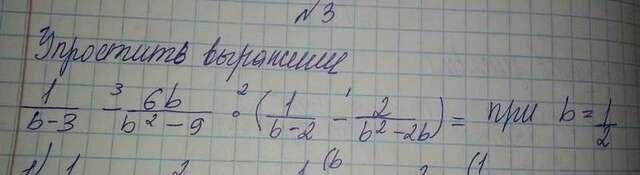 №3
Упростить выражении
1/(b-3) -³ 6b/(b²-9) •² (1/(b-2) -¹ 2/(b²-2b)) = при b=1/2